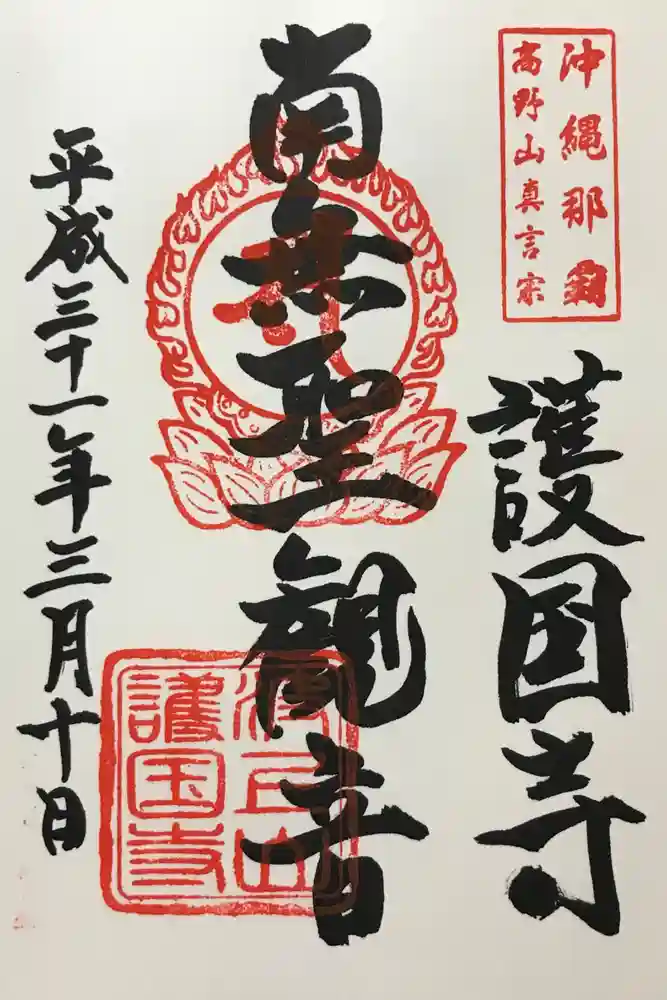 沖縄那覇
高野山真言宗
護国寺
南無聖観音
平成三十一年三月十日
波上山
護国寺